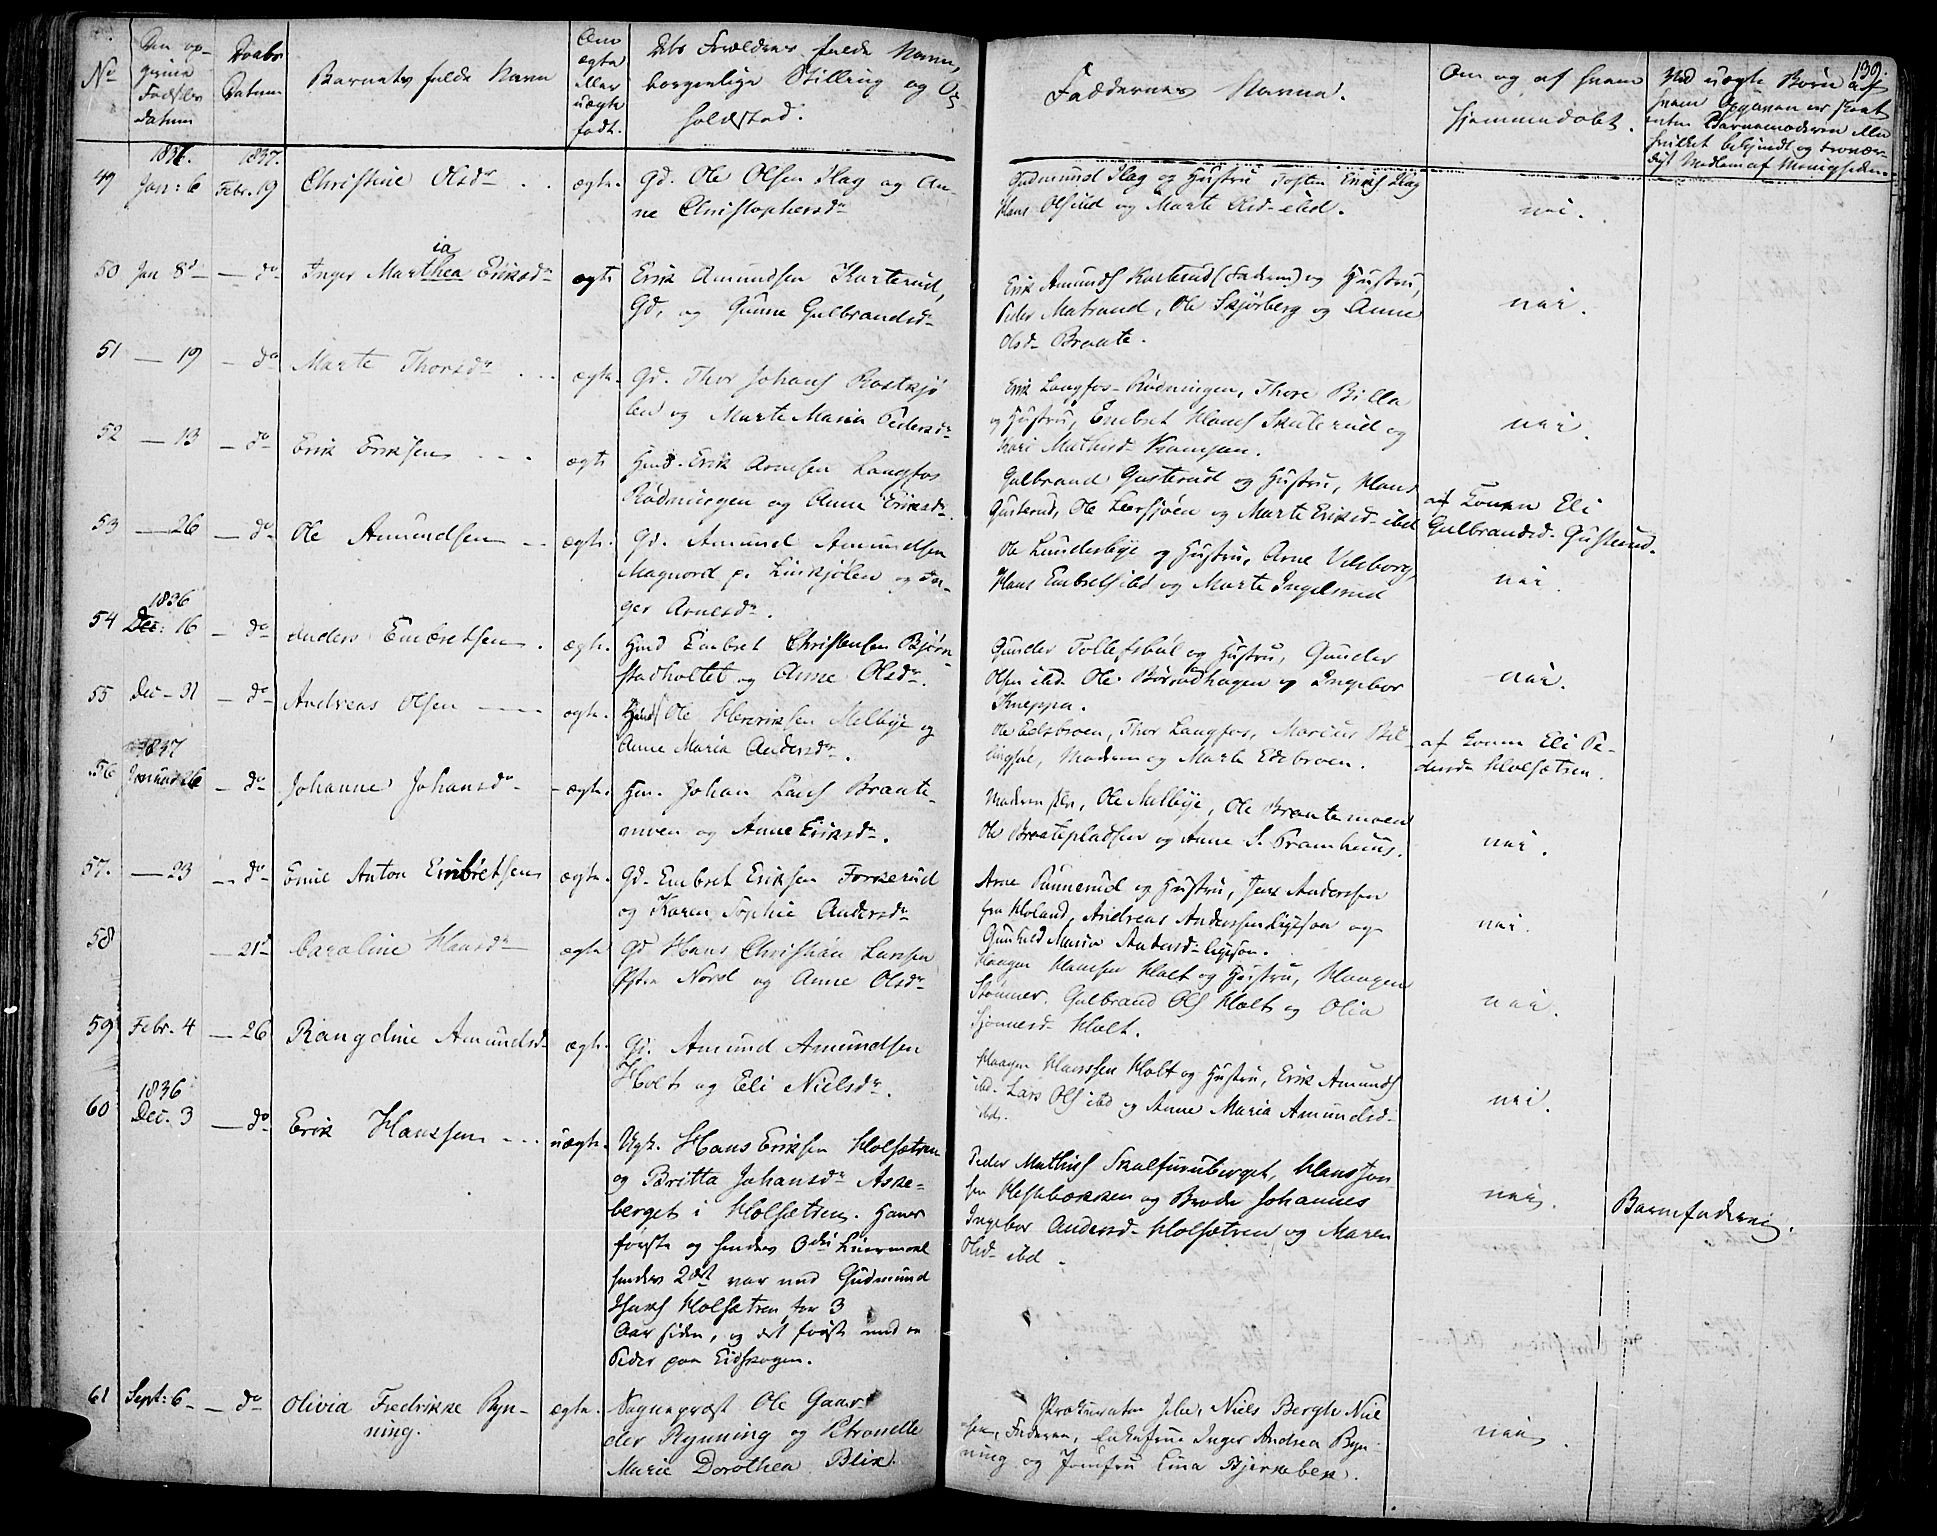 139.
No
Den op-
givne
Fødsels
datum
Daabs
Datum
Barnets fulde Navn
Om
ægte
eller
uægte
født.
Dets Forældres fulde Navn,
borgerlige Stilling og Op
holdstad.
Faddernes Navne.
Om og af hvem
hjemmedøbt.
Ved uægte Børn af
hvem Opgaven er skeet
enten Barnemoderen eller
hvilket bekjendt og troevær-
digt Medlem af Menigheden.
1836. 1837.
49 Jan: 6 Febr. 19 Christine Olsdr ægte. Gd. Ole Olsen Hag og An-
ne Christophersdr
Gudmund Hag og Hustru Erich Hag
Hans Olsen ibd og Marte Olsd ibid.
nei.
50 Jan 8d - do Inger Marthea Eriksdr ægte Erik Amundsen Karterud,
ia
Gd, og Gunne Gulbrandsd
Erik Amunds Karterud (Faderen) og Hustru,
Peder Matrand, Ole Skjørberg og Anne
Olsd Braate.
nei.
51 - 19 - do Marte Thorsdr ægte. Gd. Thor Johans Rastkjø
len og Marte Maria Pedersdr
Erik Langfos-Rødningen, Thore Billa
og Hustru, Embret Hans Skuterud og
Kari Mathisd Kampen.
nei.
52 - 13 - do Erik Eriksen ægte Hmd. Erik Arnesen Langfos
Rødningen og Anne Eriksdr.
Gulbrand Gusterud og Hustru, Hans
Gusterud, Ole Leersjøen og Marte Eriksd ibd
af Konen Eli
Gulbrandsd. Gusterud.
53 - 26 - do Ole Amundsen ægte. Gd. Amund Amundsen
Magnord p. Linkjølen og In-
ger Arnesdr.
Ole Lunderbye og Hustru, Arne Vilsborg,
Hans Embrets ibd og Marte Ingelsrud
nei.
1836
54 Dec: 16 - do Anders Embretsen ægte. Hmd Embret Christensen Bjørn-
stadholtet og Anne Olsdr.
Gunder Tollefsbøl og Hustru, Gunder
Olsen ibd Ole Børsandhagen og Ingebor
Kneppa.
nei.
55 Dec - 31 - do Andreas Olsen ægte. Hmd Ole Henriksen Melbye og
Anne Maria Andersdr.
Ole Eidsbroen, Thor Langfos, Marius Bil-
lingsøe, Moderen og Marte Edsbroen.
af Konen Eli Pe-
dersd Holsætren.
1837
56 Januar 26 - do Johanne Johansdr - ægte. Hm. Johan Lars Braate-
moen og Anne Eriksdr.
Moderen selv, Ole Melbye, Ole Braatemoen
Ole Braatepladsen og Anne S. Framhuus.
nei.
57. - 23 - do Emil Anton Embretsen ægte. Gd. Embret Eriksen Forkerud
og Karen Sophie Andersdr
Arne Punnerud og Hustru, Jens Andersen
fra Høland, Andreas Anderssen og
Gunhild Maria Andersd
nei.
58 - 21d Caroline Hansdr ægte Gd Hans Christian Larssen
Østre Nord og Anne Olsdr
Haagen Hansen Holt og Hustru, Haagen
Stømner. Gulbrand Ols Holt og Olia
Holt.
nei.
59 Febr. 4 - 26 Rangdine Amundsd. ægte. Gd. Amund Amundsen
Holt og Eli Nielsdr.
Haagen Hanssen Holt og Hustru, Erik Amunds
ibd. Lars Ols ibd og Anne Maria Amundsd.
ibd.
nei.
1836
60 Dec. 3 - do Erik Hanssen uægte. Ugk. Hans Eriksen Holsætren
og Britta Johansdr Aske-
berget i Holsætren. Hans
første og hendes 3die Leiermaal
hendes 2det var med Gudmund
Holsætren for 3
Aar siden, og det første med en
Peder paa Eidskogen.
Peder Mathis Skalfuruberget, Hans Jon-
sen Hestebækken og Broder Johannes
Ingebor Andersd Holsætren og Maren
Olsd ibd.
nei.
Barnefaderen.
61 Sept: 6 - do Olivia Fredrikke Ryn-
ning. ægte. Sognepræst Ole Gaar-
der Rynning og Petronelle
Marie Dorothea Blix.
Prokurator Niels Bergh Niel
sen, Faderen, Enkefrue Inger Andrea Ryn-
ning og Jomfru Lina Bjerkebek.
nei.